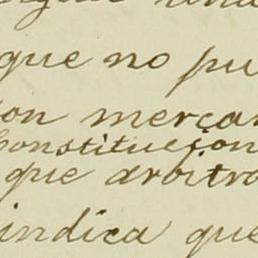 que no pu
on mercan
Constitucion
que arbitra
indica que